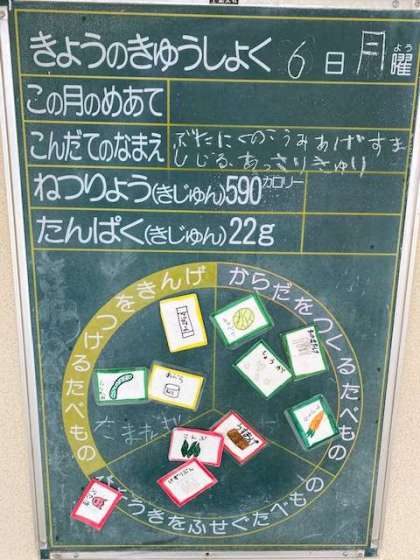 きょうのきゅうしょく 6日月曜
よう
このつきのめあて
こんだてのなまえ ぶたにくのこうみあげすま
しじる、あっさりきゅり
ねつりょう(きじゅん)590カロリー
たんぱく(きじゅん)22g
つけるたべもの
つをきんげ
からだをつくるたべもの
うきをふせぐたべもの
たまねぎ
しょうが
こんぶ